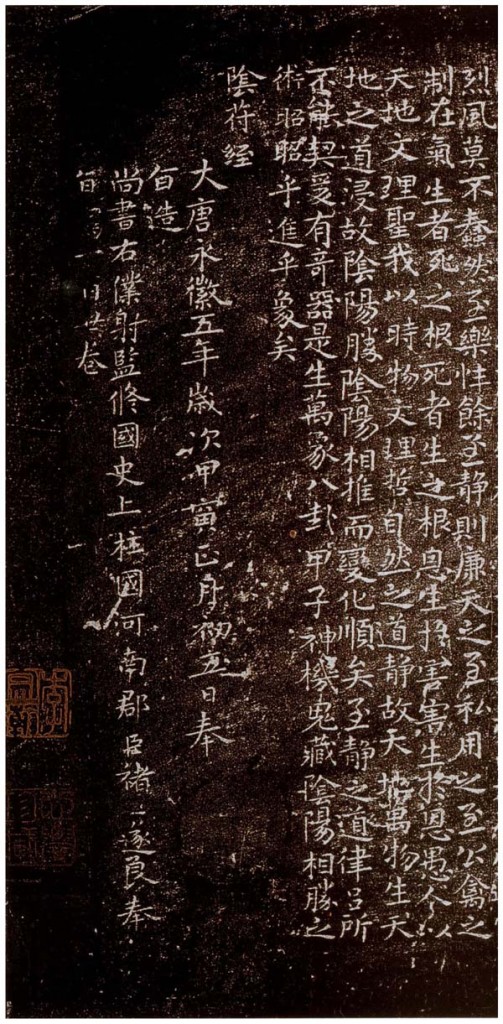 烈風莫不蠢然至樂性餘至靜則廉天之至私用之至公禽之
制在氣生者死之根死者生之根恩生於害害生於恩愚人以
天地文理聖我以時物文理哲自然之道靜故天地萬物生天
地之道浸故陰陽勝陰陽相推而變化順矣至靜之道律呂所
不能契爰有奇器是生萬象八卦甲子神機鬼藏陰陽相勝之
術昭昭乎進乎象矣
陰符經
大唐永徽五年歲次甲寅正月初五日奉
旨造
尚書右僕射監脩國史上柱國河南郡臣褚遂良奉
旨寫一百廿卷